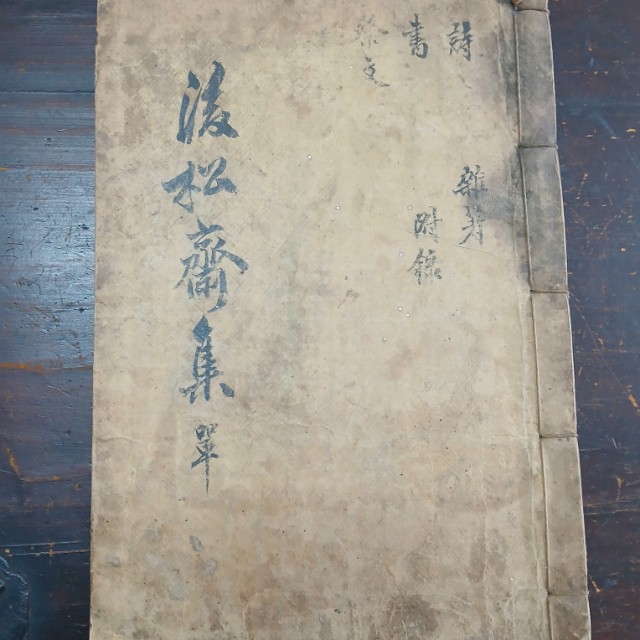 詩 雜著
書 附錄
祭文
後松齋集 單